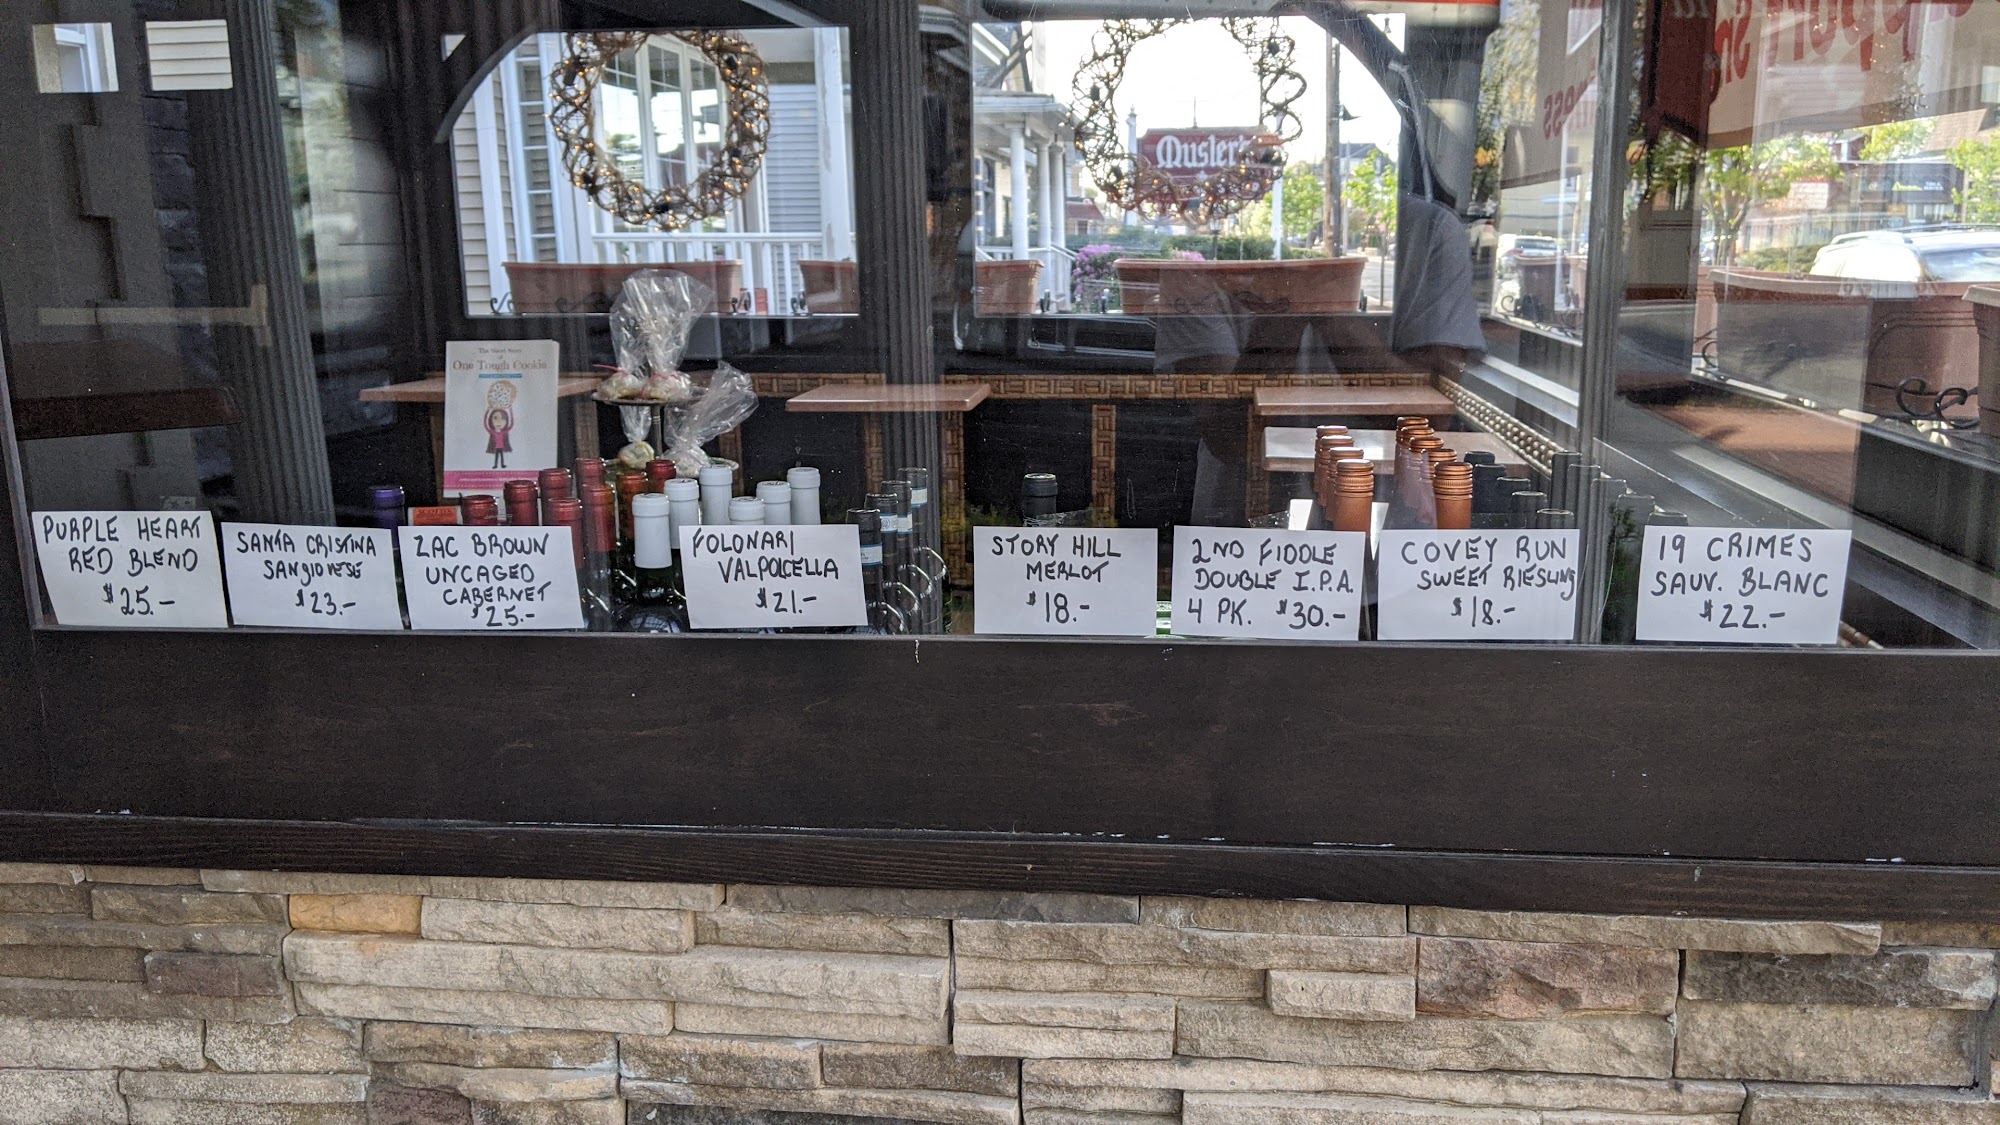 Musler's
The Sweet Story
of
One Tough Cookie
PURPLE HEART
RED BLEND
$25.-
SANTA CRISTINA
SANGIOVESE
$23.-
ZAC BROWN
UNCAGED
CABERNET
$25.-
FOLONARI
VALPOLCELLA
$21.-
STORY HILL
MERLOT
$18.-
2ND FIDDLE
DOUBLE I.P.A.
4 PK. $30.-
COVEY RUN
SWEET RIESLING
$18.-
19 CRIMES
SAUV. BLANC
$22.-